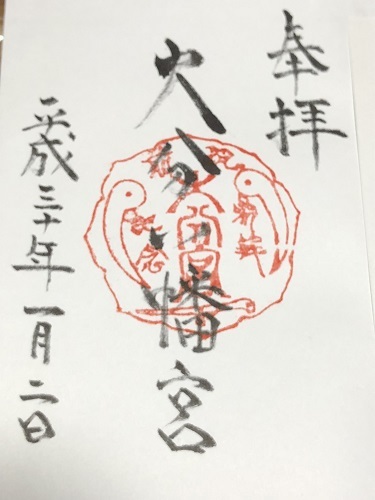 奉拝
大分八幡宮
平成三十年一月二日